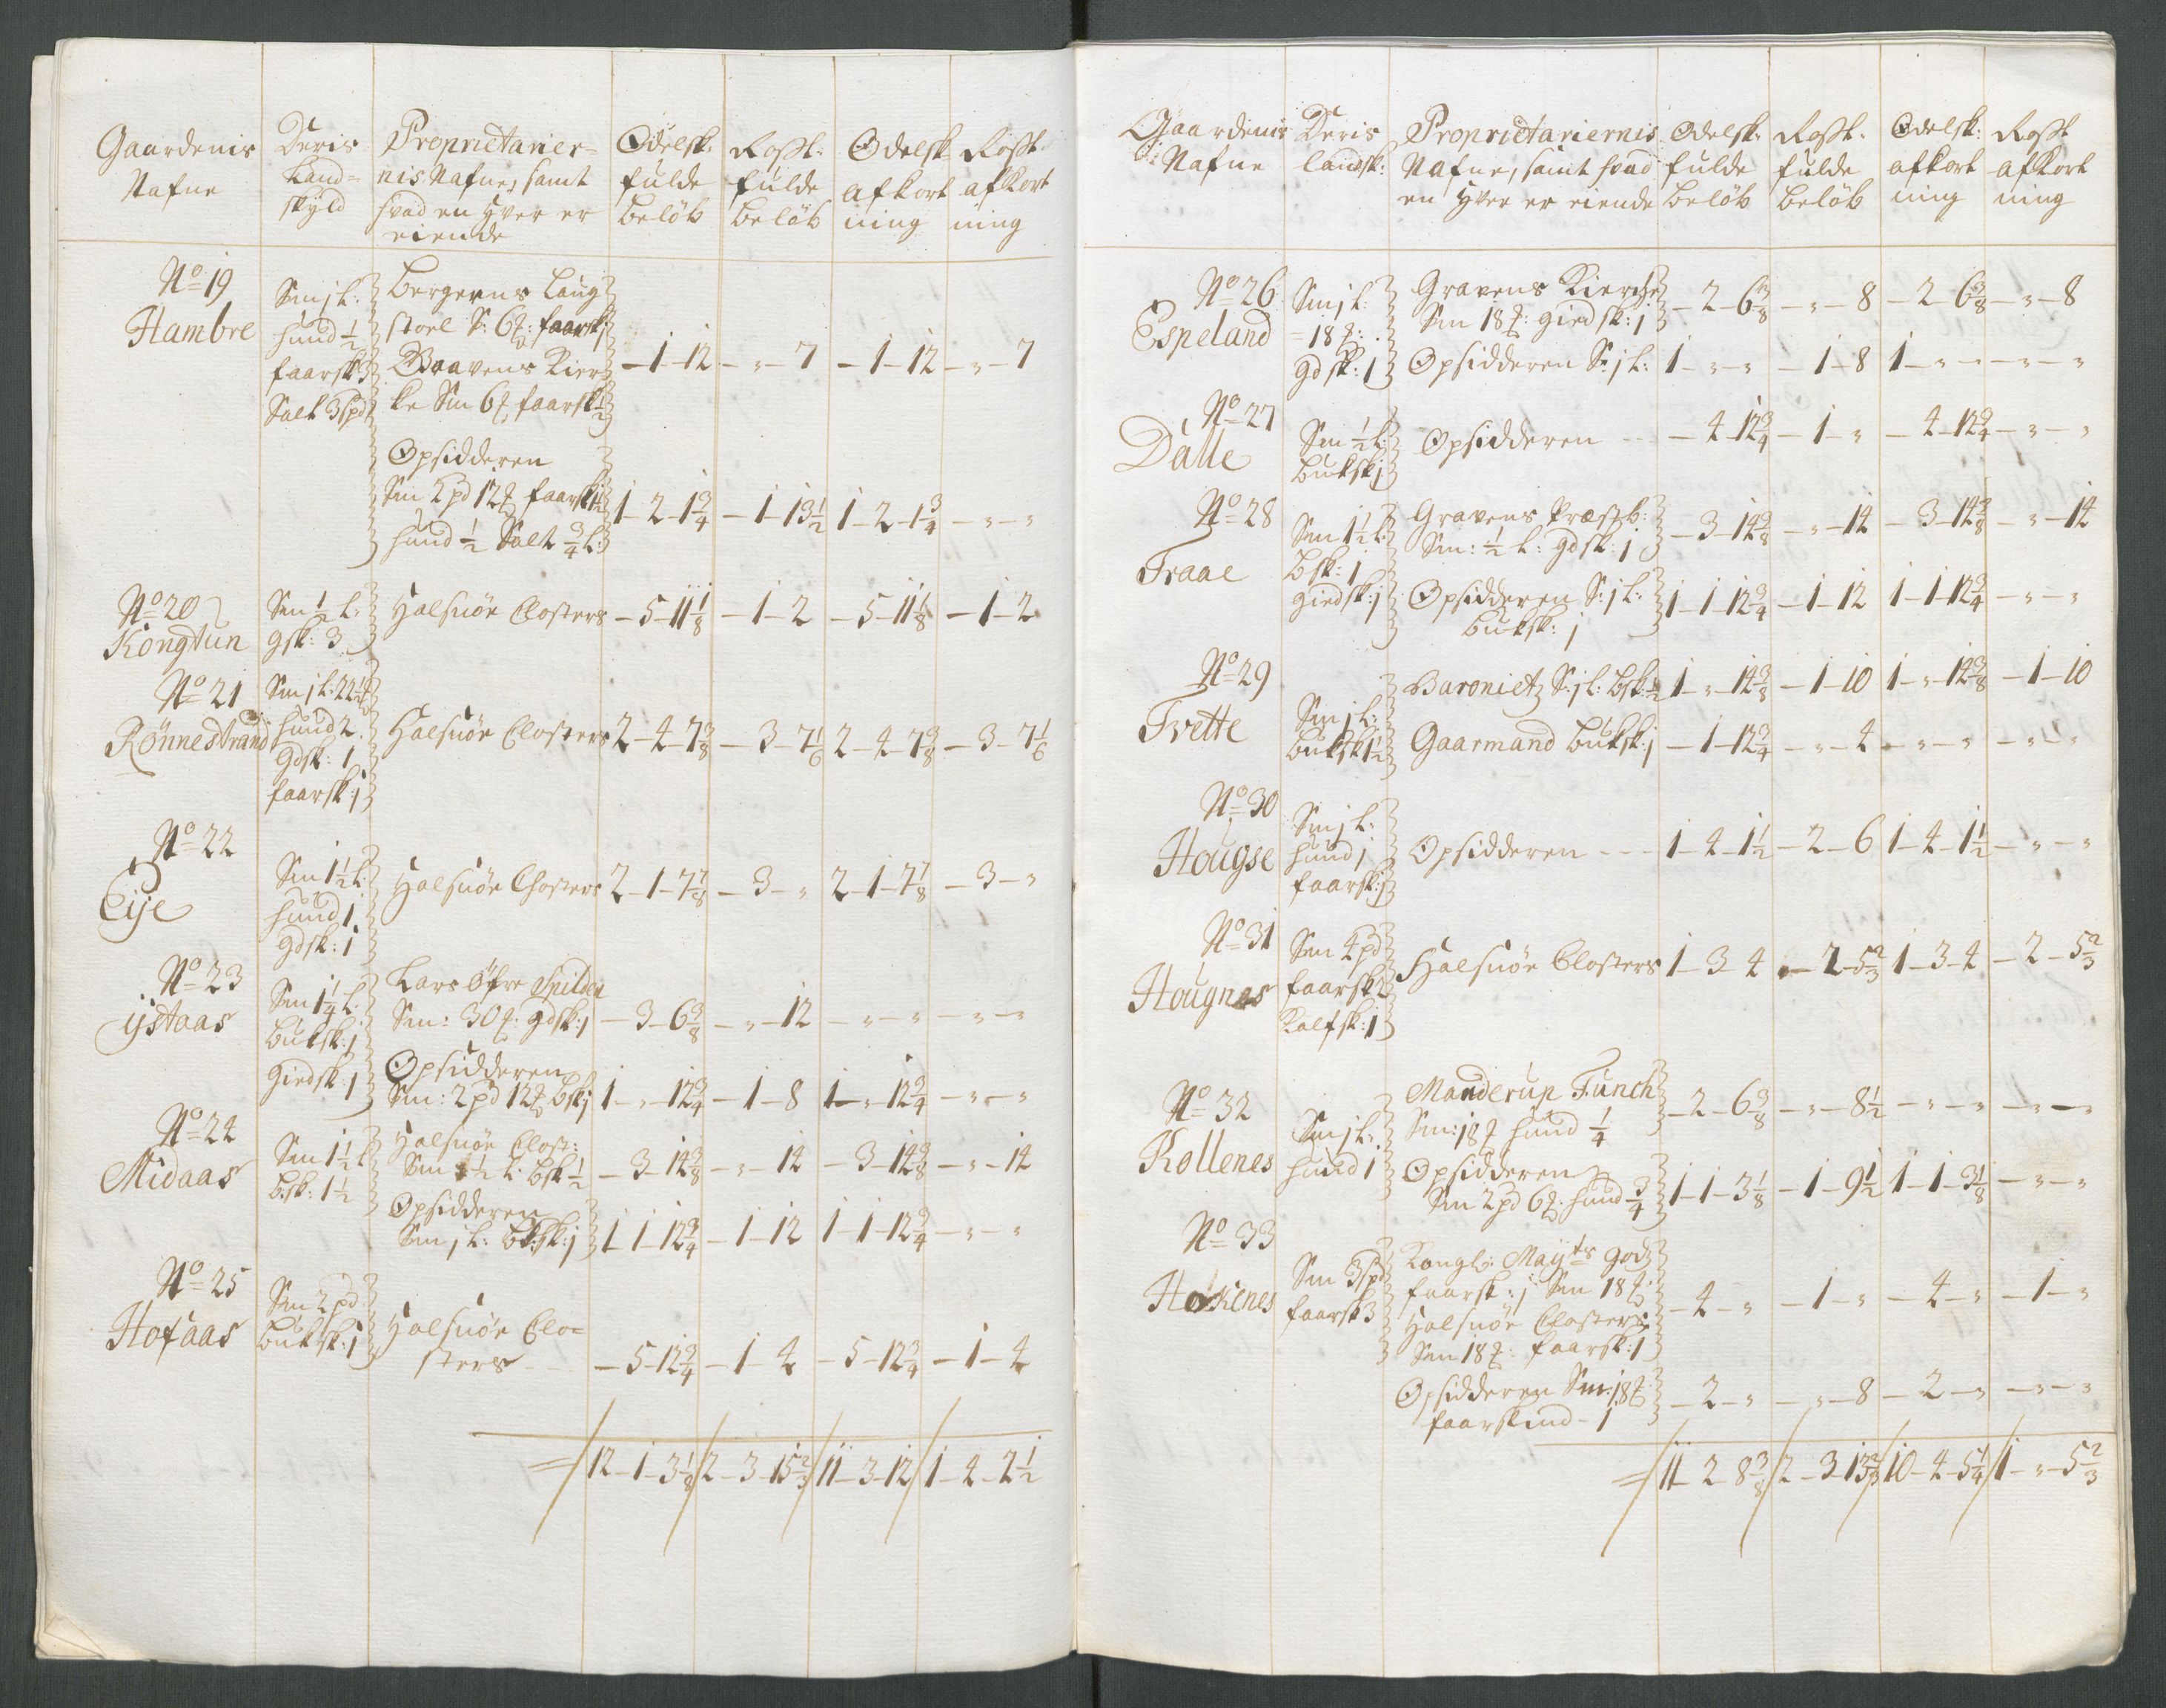 Gaardenis Nafne | Deris Land= skyld | Proprietarier= nis Nafne, samt hvad en hver er eiende | Odelsk: fulde beløb | Rosst. fulde beløb | Odelsk afkort ning | Rosst. afkort ning
No 19 Hambre | Sm j L: hund ½ faarsk 3 Salt 3 spd | Bergens Laug
stoel S: 6 : faarsk
Gravens Kier | – 1 – 12 | – „ – 7 | – 1 – 12 | – „ – 7
ke Sm 6 faarsk ½
Opsidderen
Sm 2 pd 12 faarsk 1½ | 1 – 2 – 1¾ | – 1 – 13½ | 1 – 2 – 1¾ | – „ – „
hund ½ Salt ¾ L:
No 20 Kongtun | Sm ½ L: gsk: 3 | Halsnöe Closters | – 5 – 11⅛ | – 1 – 2 | – 5 – 11⅛ | – 1 – 2
No 21 Rönnestrand | Sm j L: 22½ hund 2 gdsk: 1 faarsk: j | Halsnöe Closters | 2 – 4 – 7⅜ | – 3 – 7⅙ | 2 – 4 – 7⅜ | – 3 – 7⅙
No 22 Eije | Sm 1½ L: hund 1 gdsk: 1 | Halsnöe Closters | 2 – 1 – 7⅞ | – 3 – „ | 2 – 1 – 7⅞ | – 3 – „
No 23 ijstaas | Sm 1¼ L: buksk: j giedsk: 1 | Lars Öfre Spilden
Sm: 30 : gdsk: j | – 3 – 6⅜ | – „ – 12 | – „ – „ | – „ – „
Opsidderen
Sm: 2 pd 12 bsk j | 1 – „ – 12¾ | – 1 – 8 | 1 – „ – 12¾ | – „ – „
No 24 Midaas | Sm 1½ L bsk: 1½ | Halsnöe Clost:
Sm ½ L: bsk ½ | – 3 – 14⅜ | – „ – 14 | – 3 – 14⅜ | – „ – 14
Opsidderen
Sm j L: bsk: j | 1 – 1 – 12¾ | – 1 – 12 | 1 – 1 – 12¾ | – „ – „
No 25 Hofaas | Sm 2 pd buksk: 1 | Halsnöe Clo=
sters | – 5 – 12¾ | – 1 – 4 | – 5 – 12¾ | – 1 – 4
= / 12 – 1 – 3⅛ / 2 – 3 – 15⅔ / 11 – 3 – 12 / 1 – 4 – 2½
Gaardenis Nafne | Deris landsk: | Proprietariernis Nafne, samt hvad en hver er eiende | Odelsk: fulde beløb | Rosst. fulde beløb | Odelsk: afkort ning | Rosst afkort ning
No 26 Espeland | Sm j L: – 18 : gdsk: 1 | Gravens Kierche
Sm 18 : giedsk: 1 | – 2 – 6⅜ | – „ – 8 | – 2 – 6⅜ | – „ – 8
Opsidderen S: j L: | 1 – „ – „ | – 1 – 8 | 1 – „ – „ | – „ – „
No 27 Dalle | Sm ½ L: buksk j | Opsidderen | – 4 – 12¾ | – 1 – „ | – 4 – 12¾ | – „ – „
No 28 Traae | Sm 1½ L: bsk: 1 giedsk: j | Gravens Præstb:
Sm: ½ L: gdsk: 1 | – 3 – 14⅜ | – „ – 14 | – 3 – 14⅜ | – „ – 14
Opsidderen S: j L:
buksk: j | 1 – 1 – 12¾ | – 1 – 12 | 1 – 1 – 12¾ | – „ – „
No 29 Tvette | Sm j L: buksk 1½ | Baroniet S: j L: bsk: ½ | 1 – „ – 14⅜ | – 1 – 10 | 1 – „ – 14⅜ | – 1 – 10
Gaarmand buksk: j | – 1 – 12¾ | – „ – 4 | – „ – „ | – „ – „
No 30 Hougse | Sm j L: hund 1 faarsk: j | Opsidderen | 1 – 4 – 1½ | – 2 – 6 | 1 – 4 – 1½ | – „ – „
No 31 Hougnes | Sm 4 pd faarsk 2 Kalfsk: 1 | Halsnöe Closters | 1 – 3 – 4 | – 2 – 5⅔ | 1 – 3 – 4 | – 2 – 5⅔
No 32 Kollenes | Sm j L: hund 1 | Manderup Funch
Sm: 18 hund ¼ | – 2 – 6⅜ | – „ – 8½ | – „ – „ | – „ – „
Opsidderen
Sm 2 pd 6 : hund ¾ | 1 – 1 – 3⅛ | – 1 – 9½ | 1 – 1 – 3⅛ | – „ – „
No 33 Hokenes | Sm 3 spd faarsk 3 | Kongl: Mayts god
faarsk: j Sm 18
Halsnöe Closters | – 4 – „ | – 1 – „ | – 4 – „ | – 1 – „
Sm 18 : faarsk: 1
Opsidderen Sm 18
faarskind – 1 | – 2 – „ | – „ – 8 | – 2 – „ | – „ – „
= / 11 – 2 – 8⅜ / 2 – 3 – 13⅔ / 10 – 4 – 5¼ / 1 – „ – 5⅔